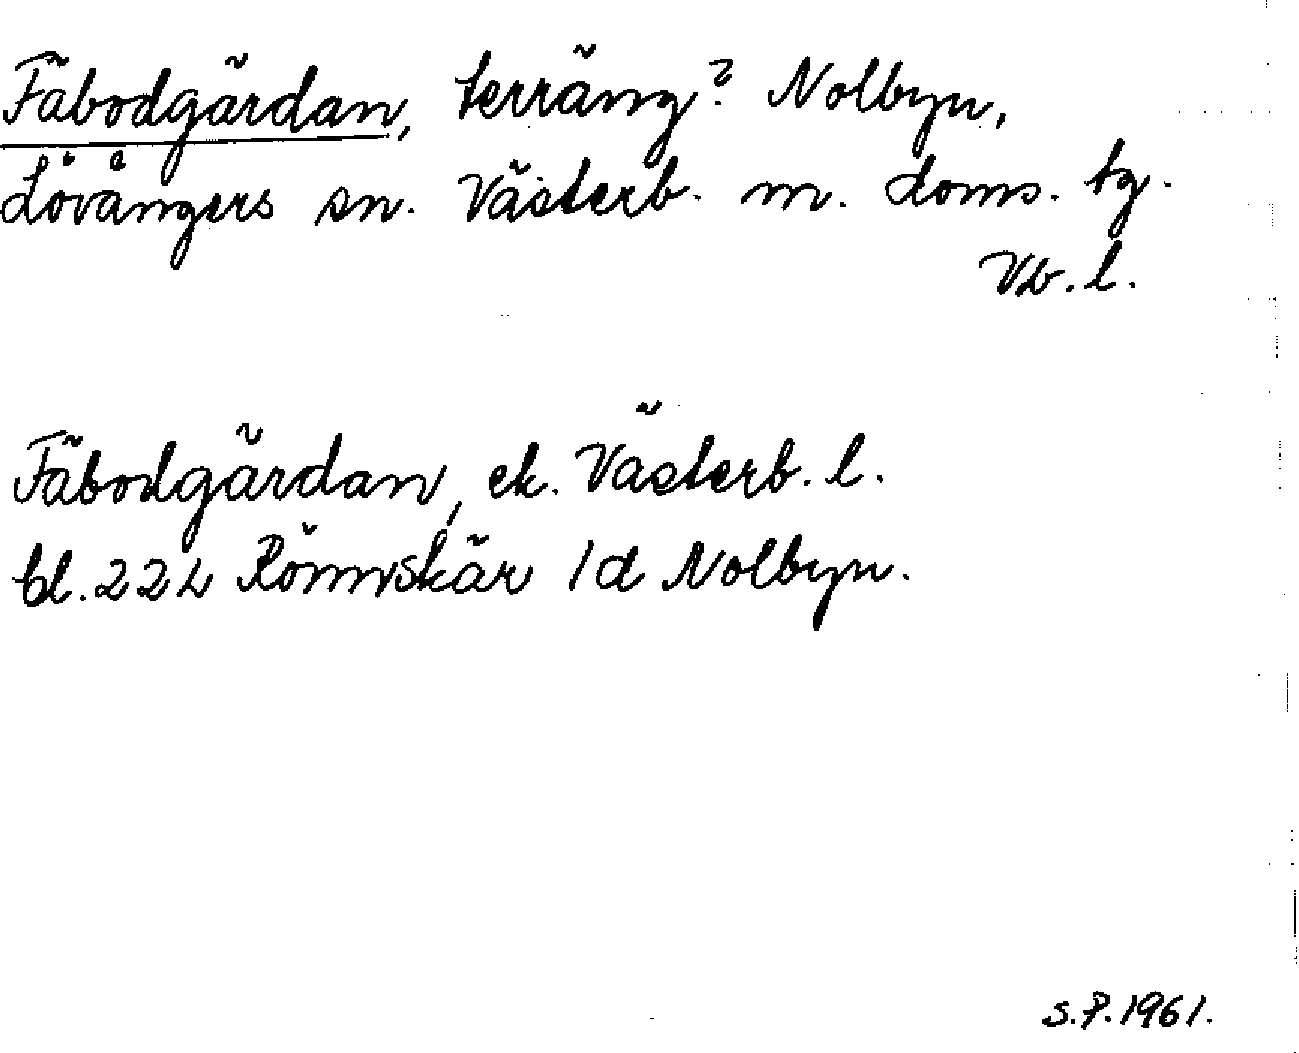 Fäbodgärdan, terräng? Nolbyn,
Lövångers sn. Västerb. m. doms. tg.
Vb. l.
Fäbodgärdan, ek. Västerb. l.
bl. 222 Rönnskär 1d Nolbyn.
S.P. 1961.